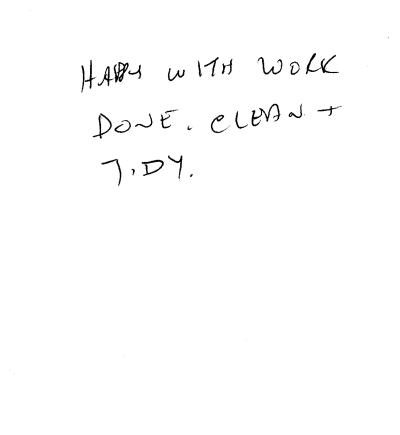 HAPPY WITH WORK
DONE. CLEAN +
TIDY.